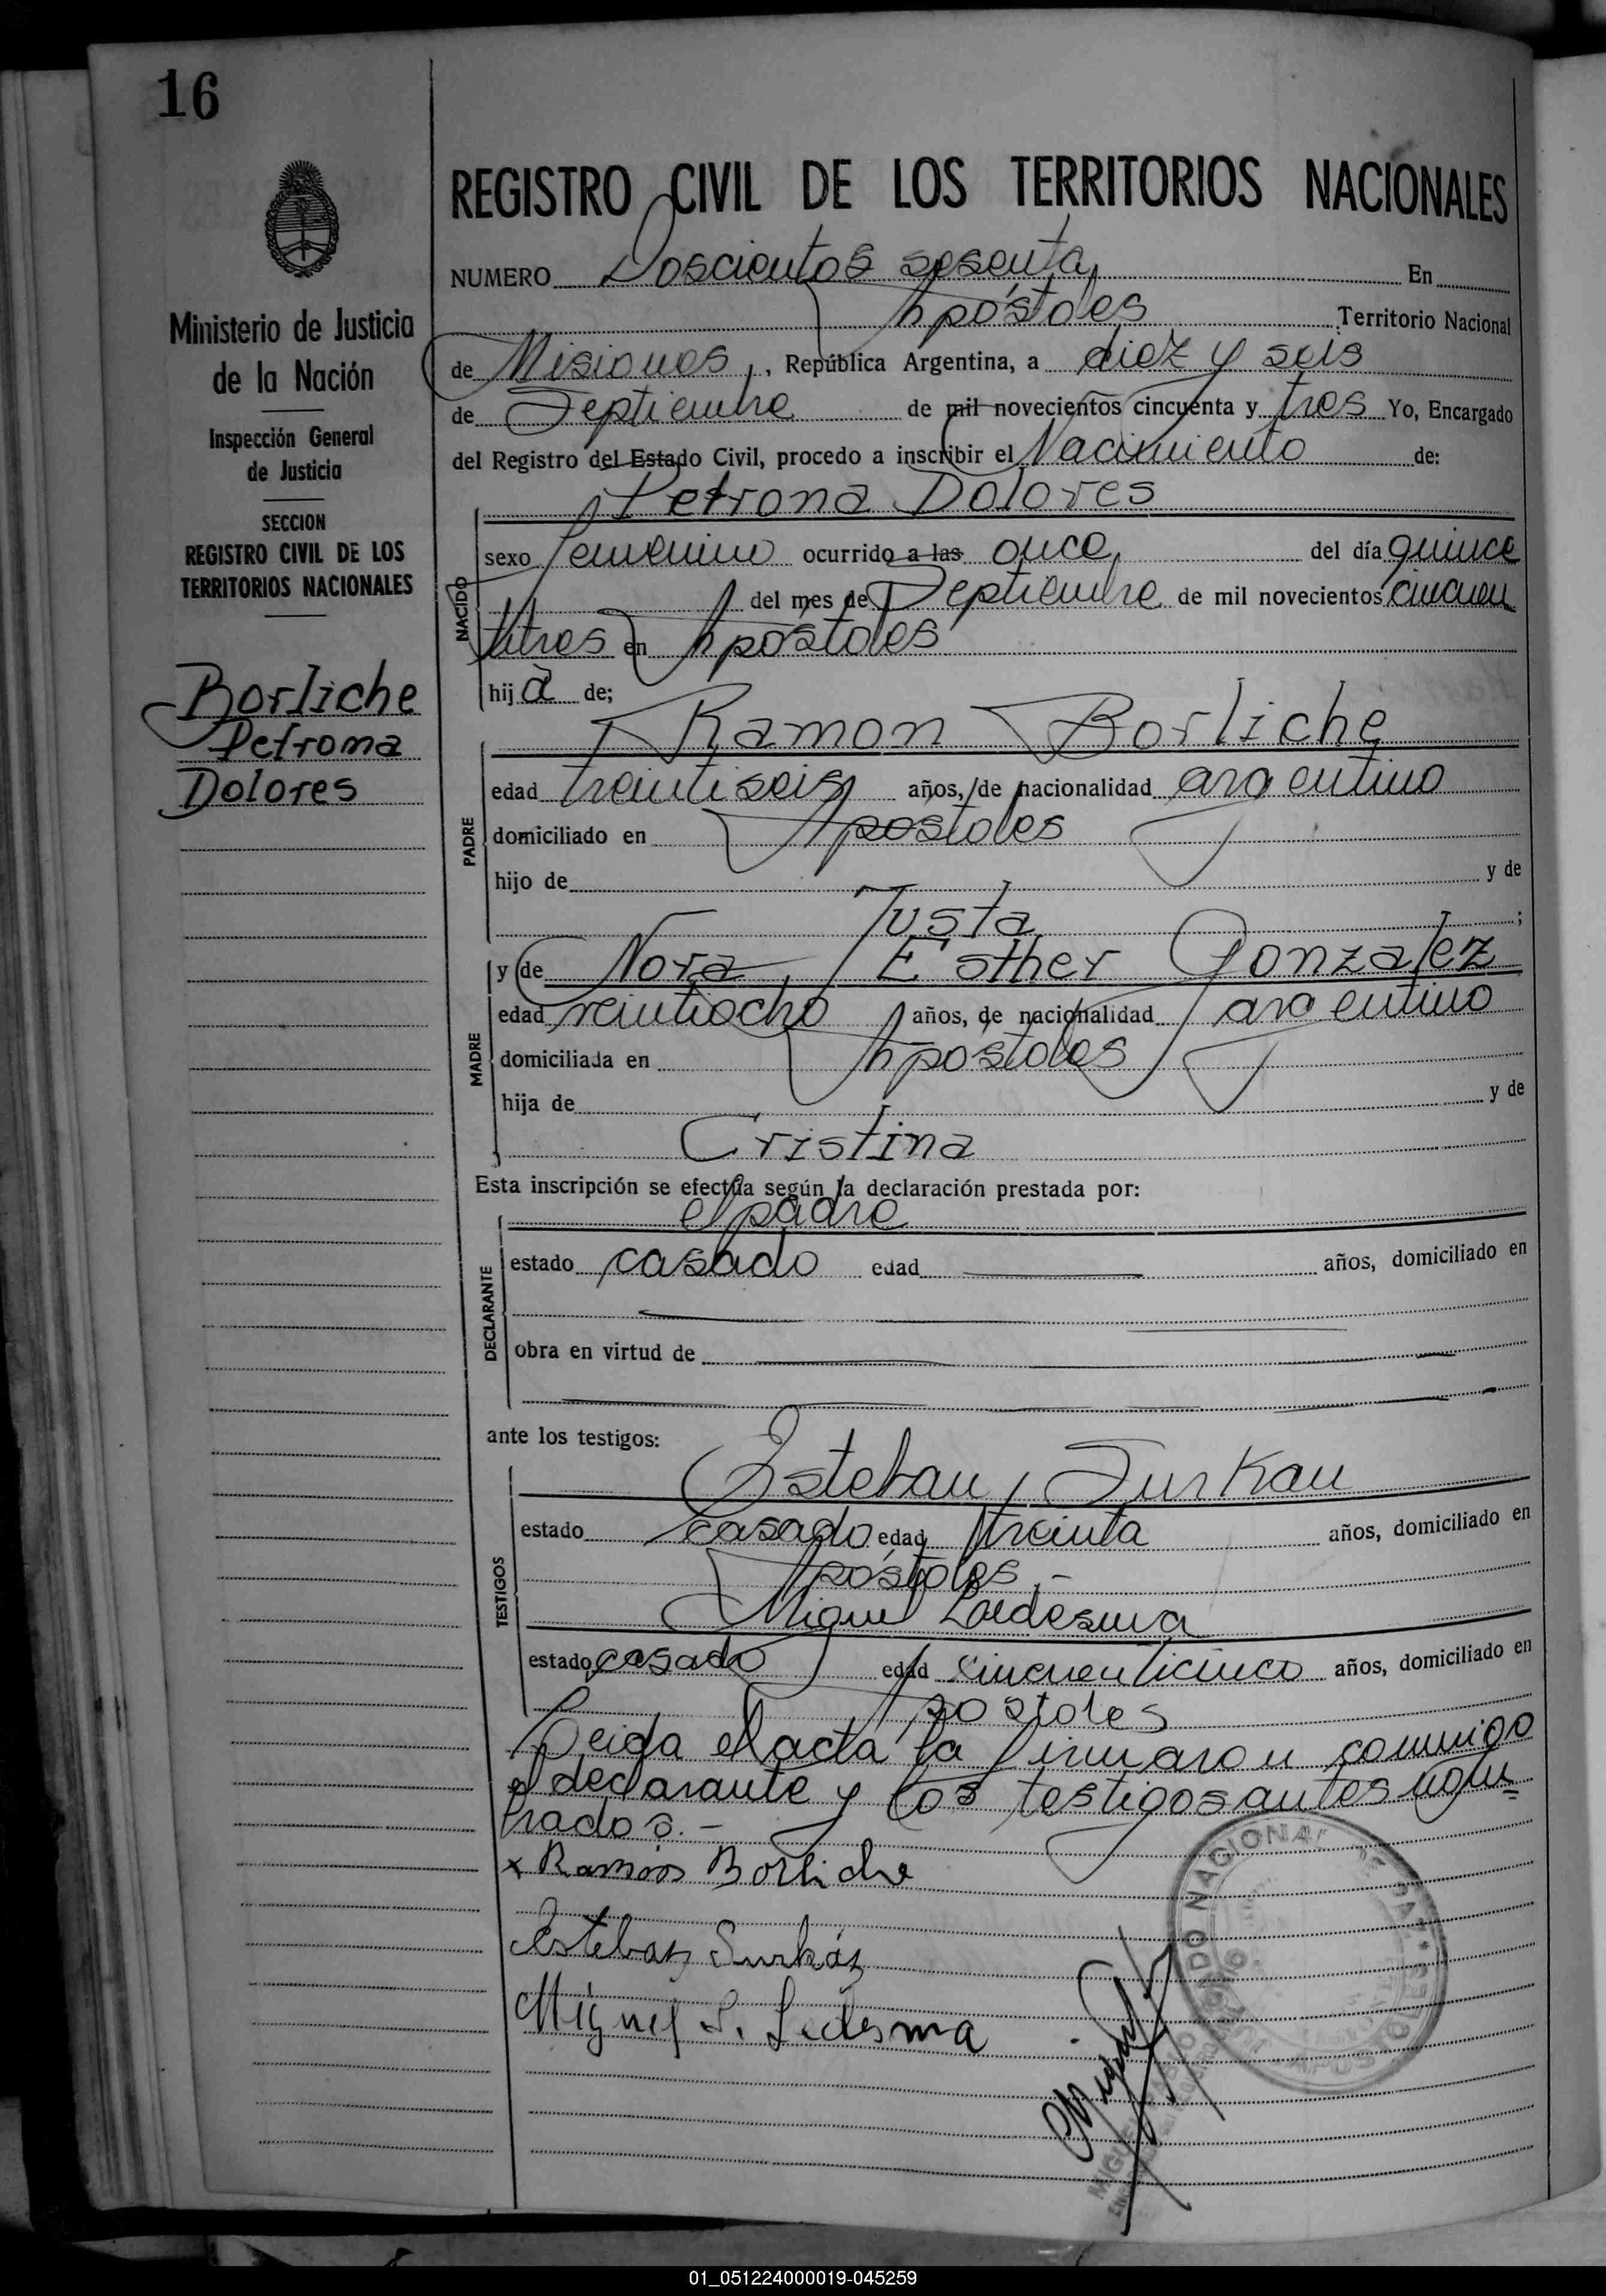 16
REGISTRO CIVIL DE LOS TERRITORIOS NACIONALES
NUMERO Doscientos sesenta En
Apóstoles Territorio Nacional
de Misiones, República Argentina, a diez y seis
de Septiembre de mil novecientos cincuenta y tres Yo, Encargado
del Registro del Estado Civil, procedo a inscribir el Nacimiento de:
Petrona Dolores
NACIDO
sexo femenino ocurrido a las once, del día quince
del mes de Septiembre de mil novecientos cincuen
titres en Apóstoles
hija de;
Ramon Borliche
PADRE
edad treintiseis años, de nacionalidad argentino
domiciliado en Apostoles
hijo de y de
Justa ;
MADRE
y de Nora Esther Gonzalez
edad veintiocho años, de nacionalidad argentino
domiciliada en Apostoles
hija de y de
Cristina
Esta inscripción se efectúa según la declaración prestada por:
el padre
DECLARANTE
estado casado edad años, domiciliado en
obra en virtud de
ante los testigos:
TESTIGOS
Esteban Surkan
estado casado edad treinta años, domiciliado en
Apóstoles.-
Miguel Ledesma
estado casado edad cincuenticinco años, domiciliado en
Apostoles
Leida el acta la firmaron conmigo
el declarante y los testigos antes nom=
brados.-
x Ramón Borliche
Esteban Surkán
Miguel S. Ledesma
Ministerio de Justicia
de la Nación
Inspección General
de Justicia
SECCION
REGISTRO CIVIL DE LOS
TERRITORIOS NACIONALES
Borliche
Petrona
Dolores
01_051224000019-045259